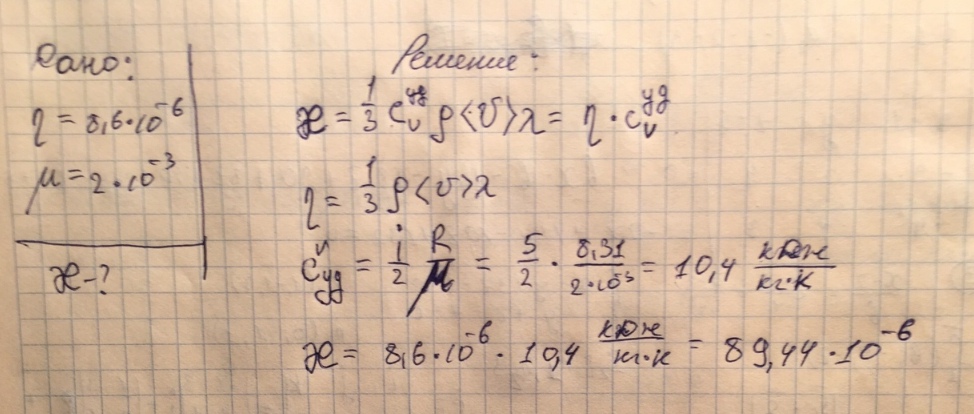 Дано:
η = 8,6·10⁻⁶
μ = 2·10⁻³
æ - ?
Решение:
æ = 1/3 c_v^уд ρ<υ>λ = η · c_v^уд
η = 1/3 ρ<υ>λ
c_уд^v = i/2 R/μ = 5/2 · 8,31/2·10⁻³ = 10,4 кДж/кг·К
æ = 8,6·10⁻⁶ · 10,4 кДж/кг·К = 89,44·10⁻⁶